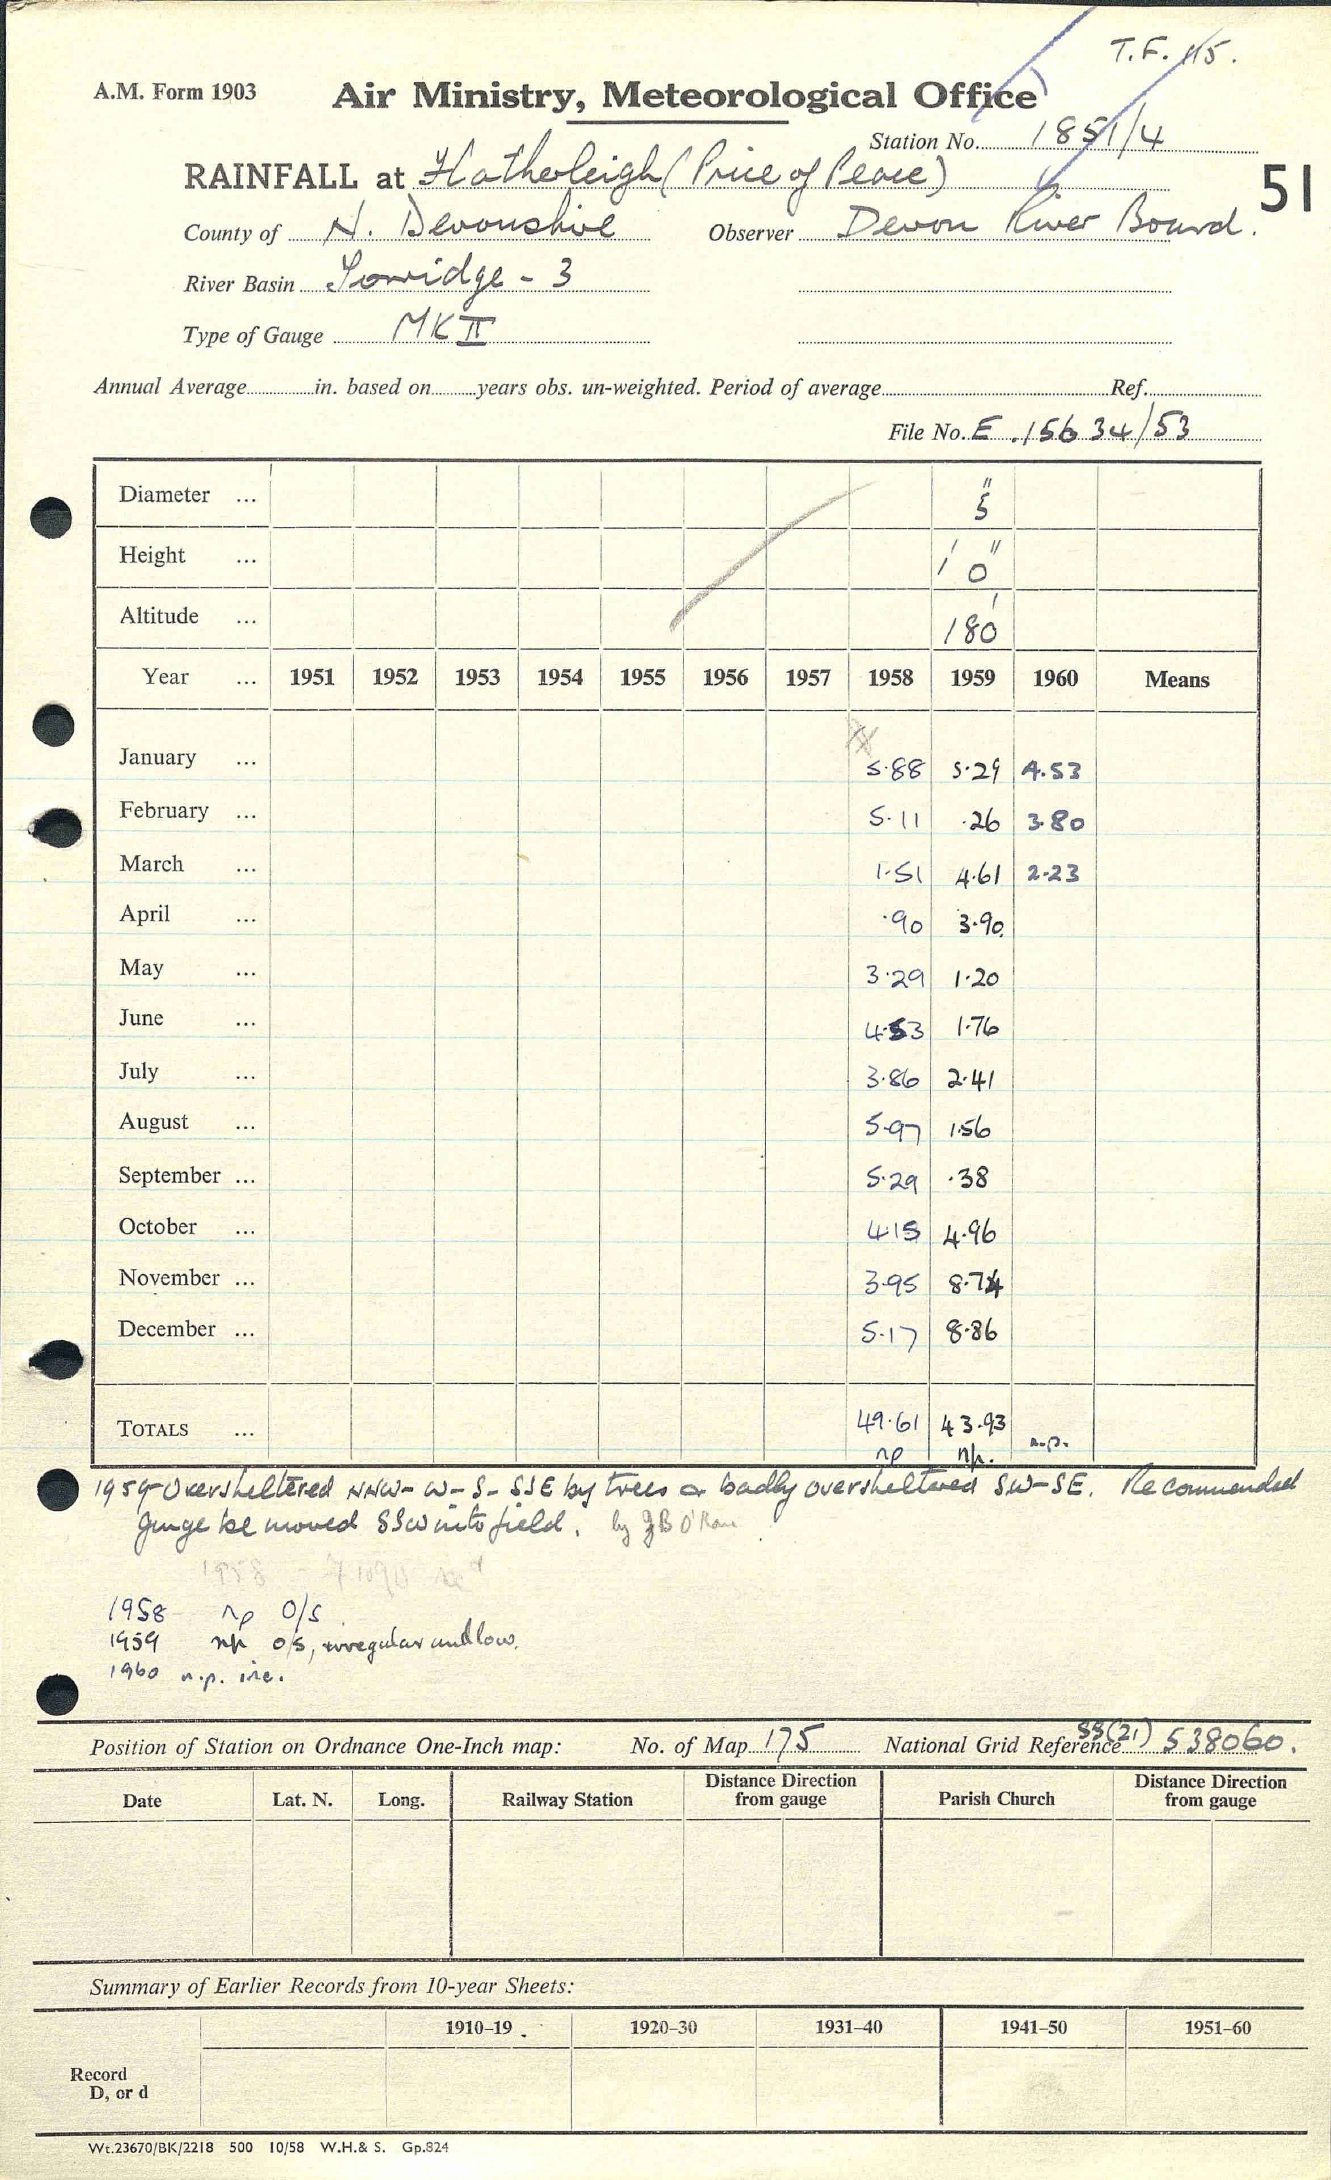 T.F. 115.
A.M. Form 1903 Air Ministry, Meteorological Office
Station No. 1851/4
RAINFALL at Hatherleigh (Price of Peace)
51
County of N. Devonshire Observer Devon River Board.
River Basin Torridge - 3
Type of Gauge MK II
Annual Average in. based on years obs. un-weighted. Period of average Ref.
File No. E.15634/53
Diameter ... 5"
Height ... 1' 0"
Altitude ... 180'
Year ... 1951 1952 1953 1954 1955 1956 1957 1958 1959 1960 Means
January ... 5.88 5.29 4.53
February ... 5.11 .26 3.80
March ... 1.51 4.61 2.23
April ... .90 3.90
May ... 3.29 1.20
June ... 4.53 1.76
July ... 3.86 2.41
August ... 5.97 1.56
September ... 5.29 .38
October ... 4.15 4.96
November ... 3.95 8.74
December ... 5.17 8.86
TOTALS ... 49.61 43.93
np np. n.p.
1959 Oversheltered NNW - W - S - SSE by trees badly oversheltered SW-SE. Recommended
gauge be moved SSW into field. by
1958 np O/S
1959 np o/s, irregular and low.
1960 n.p. inc.
Position of Station on Ordnance One-Inch map: No. of Map 175 National Grid Reference SS(21) 538060.
Date Lat. N. Long. Railway Station Distance Direction from gauge Parish Church Distance Direction from gauge
Summary of Earlier Records from 10-year Sheets:
1910–19 1920–30 1931–40 1941–50 1951–60
Record
D, or d
Wt.23670/BK/2218 500 10/58 W.H.& S. Gp.824